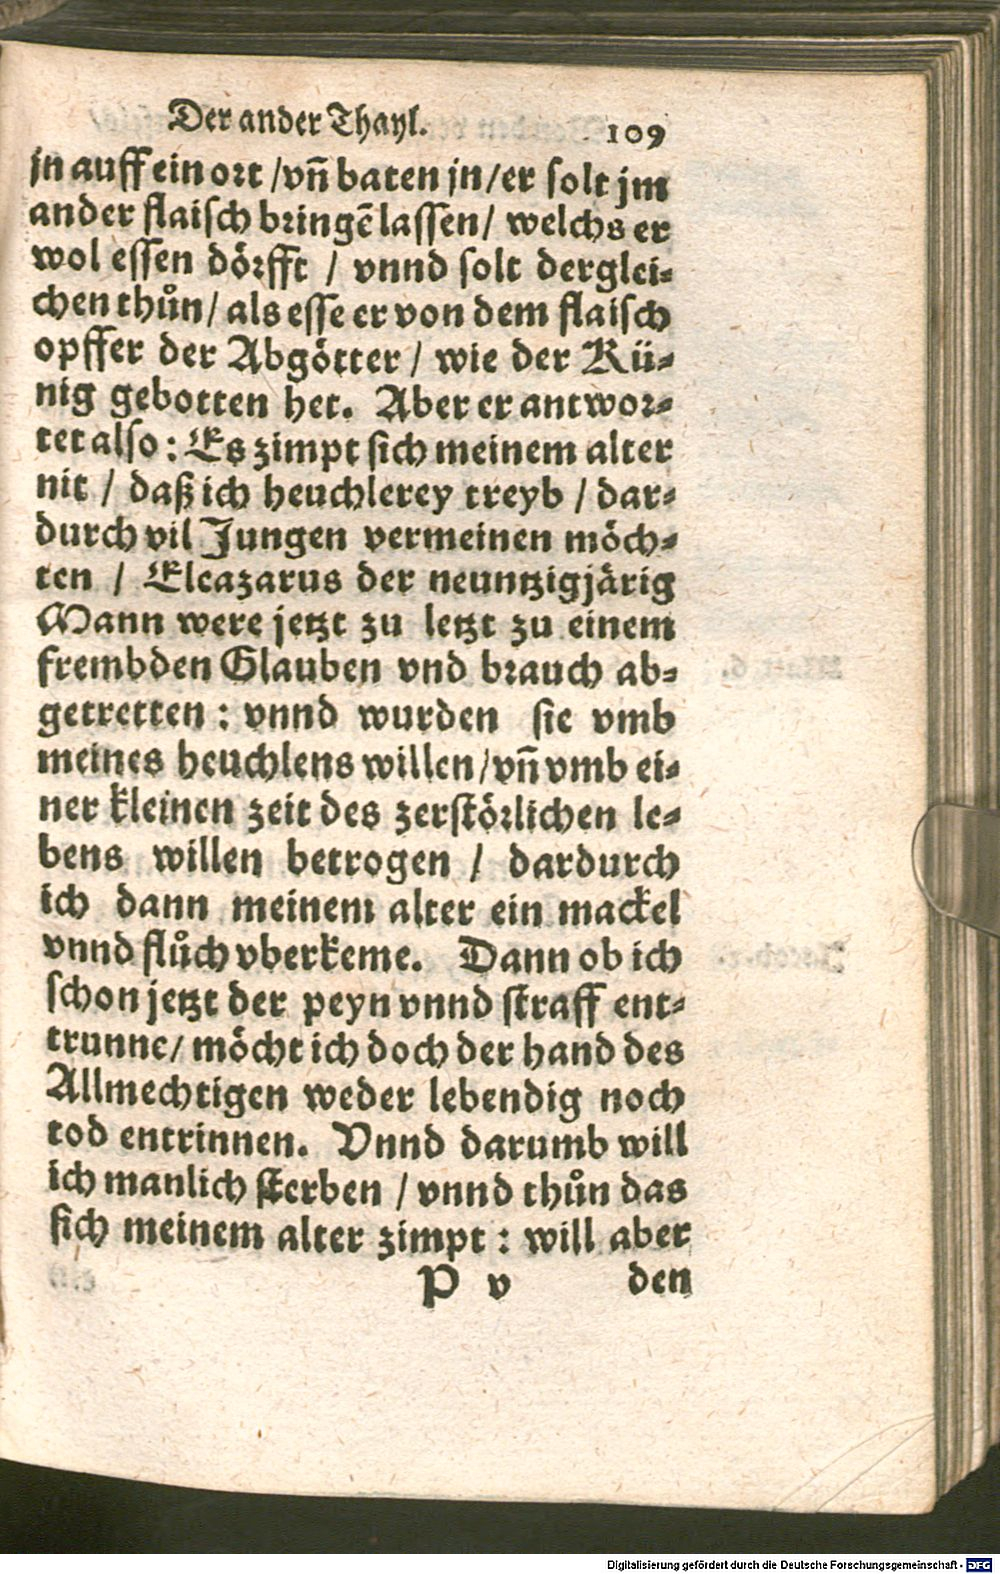 Der ander Thayl. 109
jn auff ein ort / vñ baten jn / er solt jm
ander flaisch bringē lassen / welchs er
wol essen dörfft / vnnd solt derglei⸗
chen thůn / als esse er von dem flaisch
opffer der Abgötter / wie der Kü⸗
nig gebotten het. Aber er antwor⸗
tet also: Es zimpt sich meinem alter
nit / daß ich heuchlerey treyb / dar⸗
durch vil Jungen vermeinen möch⸗
ten / Eleazarus der neuntzigjärig
Mann were jetzt zu letzt zu einem
frembden Glauben vnd brauch ab⸗
getretten: vnnd wurden sie vmb
meines heuchlens willen / vñ vmb ei⸗
ner kleinen zeit des zerstörlichen le⸗
bens willen betrogen / dardurch
ich dann meinem alter ein mackel
vnnd flůch vberkeme. Dann ob ich
schon jetzt der peyn vnnd straff ent⸗
trunne / möcht ich doch der hand des
Allmechtigen weder lebendig noch
tod entrinnen. Vnnd darumb will
ich manlich sterben / vnnd thůn das
sich meinem alter zimpt: will aber
P v den
Digitalisierung gefördert durch die Deutsche Forschungsgemeinschaft - DFG